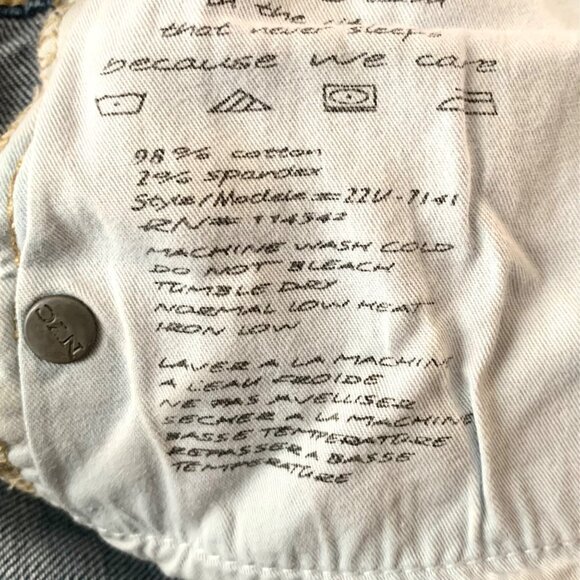 in the city
that never sleeps
because we care
98% cotton
2% spandex
Style/Modele# 22U-7141
RN# 114342
MACHINE WASH COLD
DO NOT BLEACH
TUMBLE DRY
NORMAL LOW HEAT
IRON LOW
LAVER A LA MACHIN
A LEAU FROIDE
NE PAS AVELLISER
SECHER A LA MACHINE
BASSE TEMPERATURE
REPASSER A BASSE
TEMPERATURE
NYDC